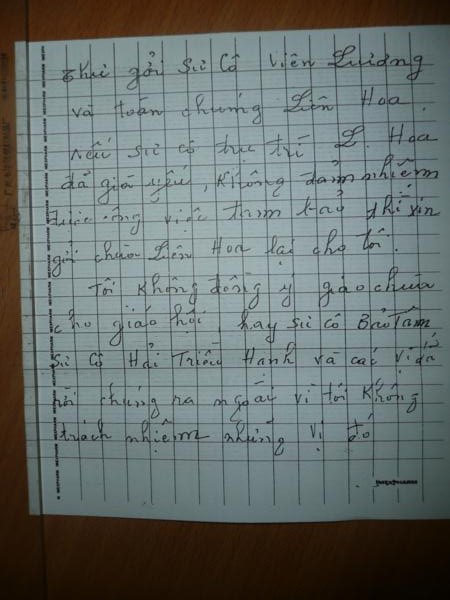 thư gởi Sư Cô Viên Lương
và toàn chúng Liên Hoa.
nếu sư cô trụ trì L. Hoa
đã già yếu, Không đảm nhiệm
được công việc tam bảo thì xin
gởi chùa Liên Hoa lại cho tôi.
Tôi Không đồng ý giáo chùa
cho giáo hội, hay sư cô Bảo Tâm
sư Cô Hải Triều Hanh và các vị đã
rời chúng ra ngoài vì tôi Không
trách nhiệm những vị đó